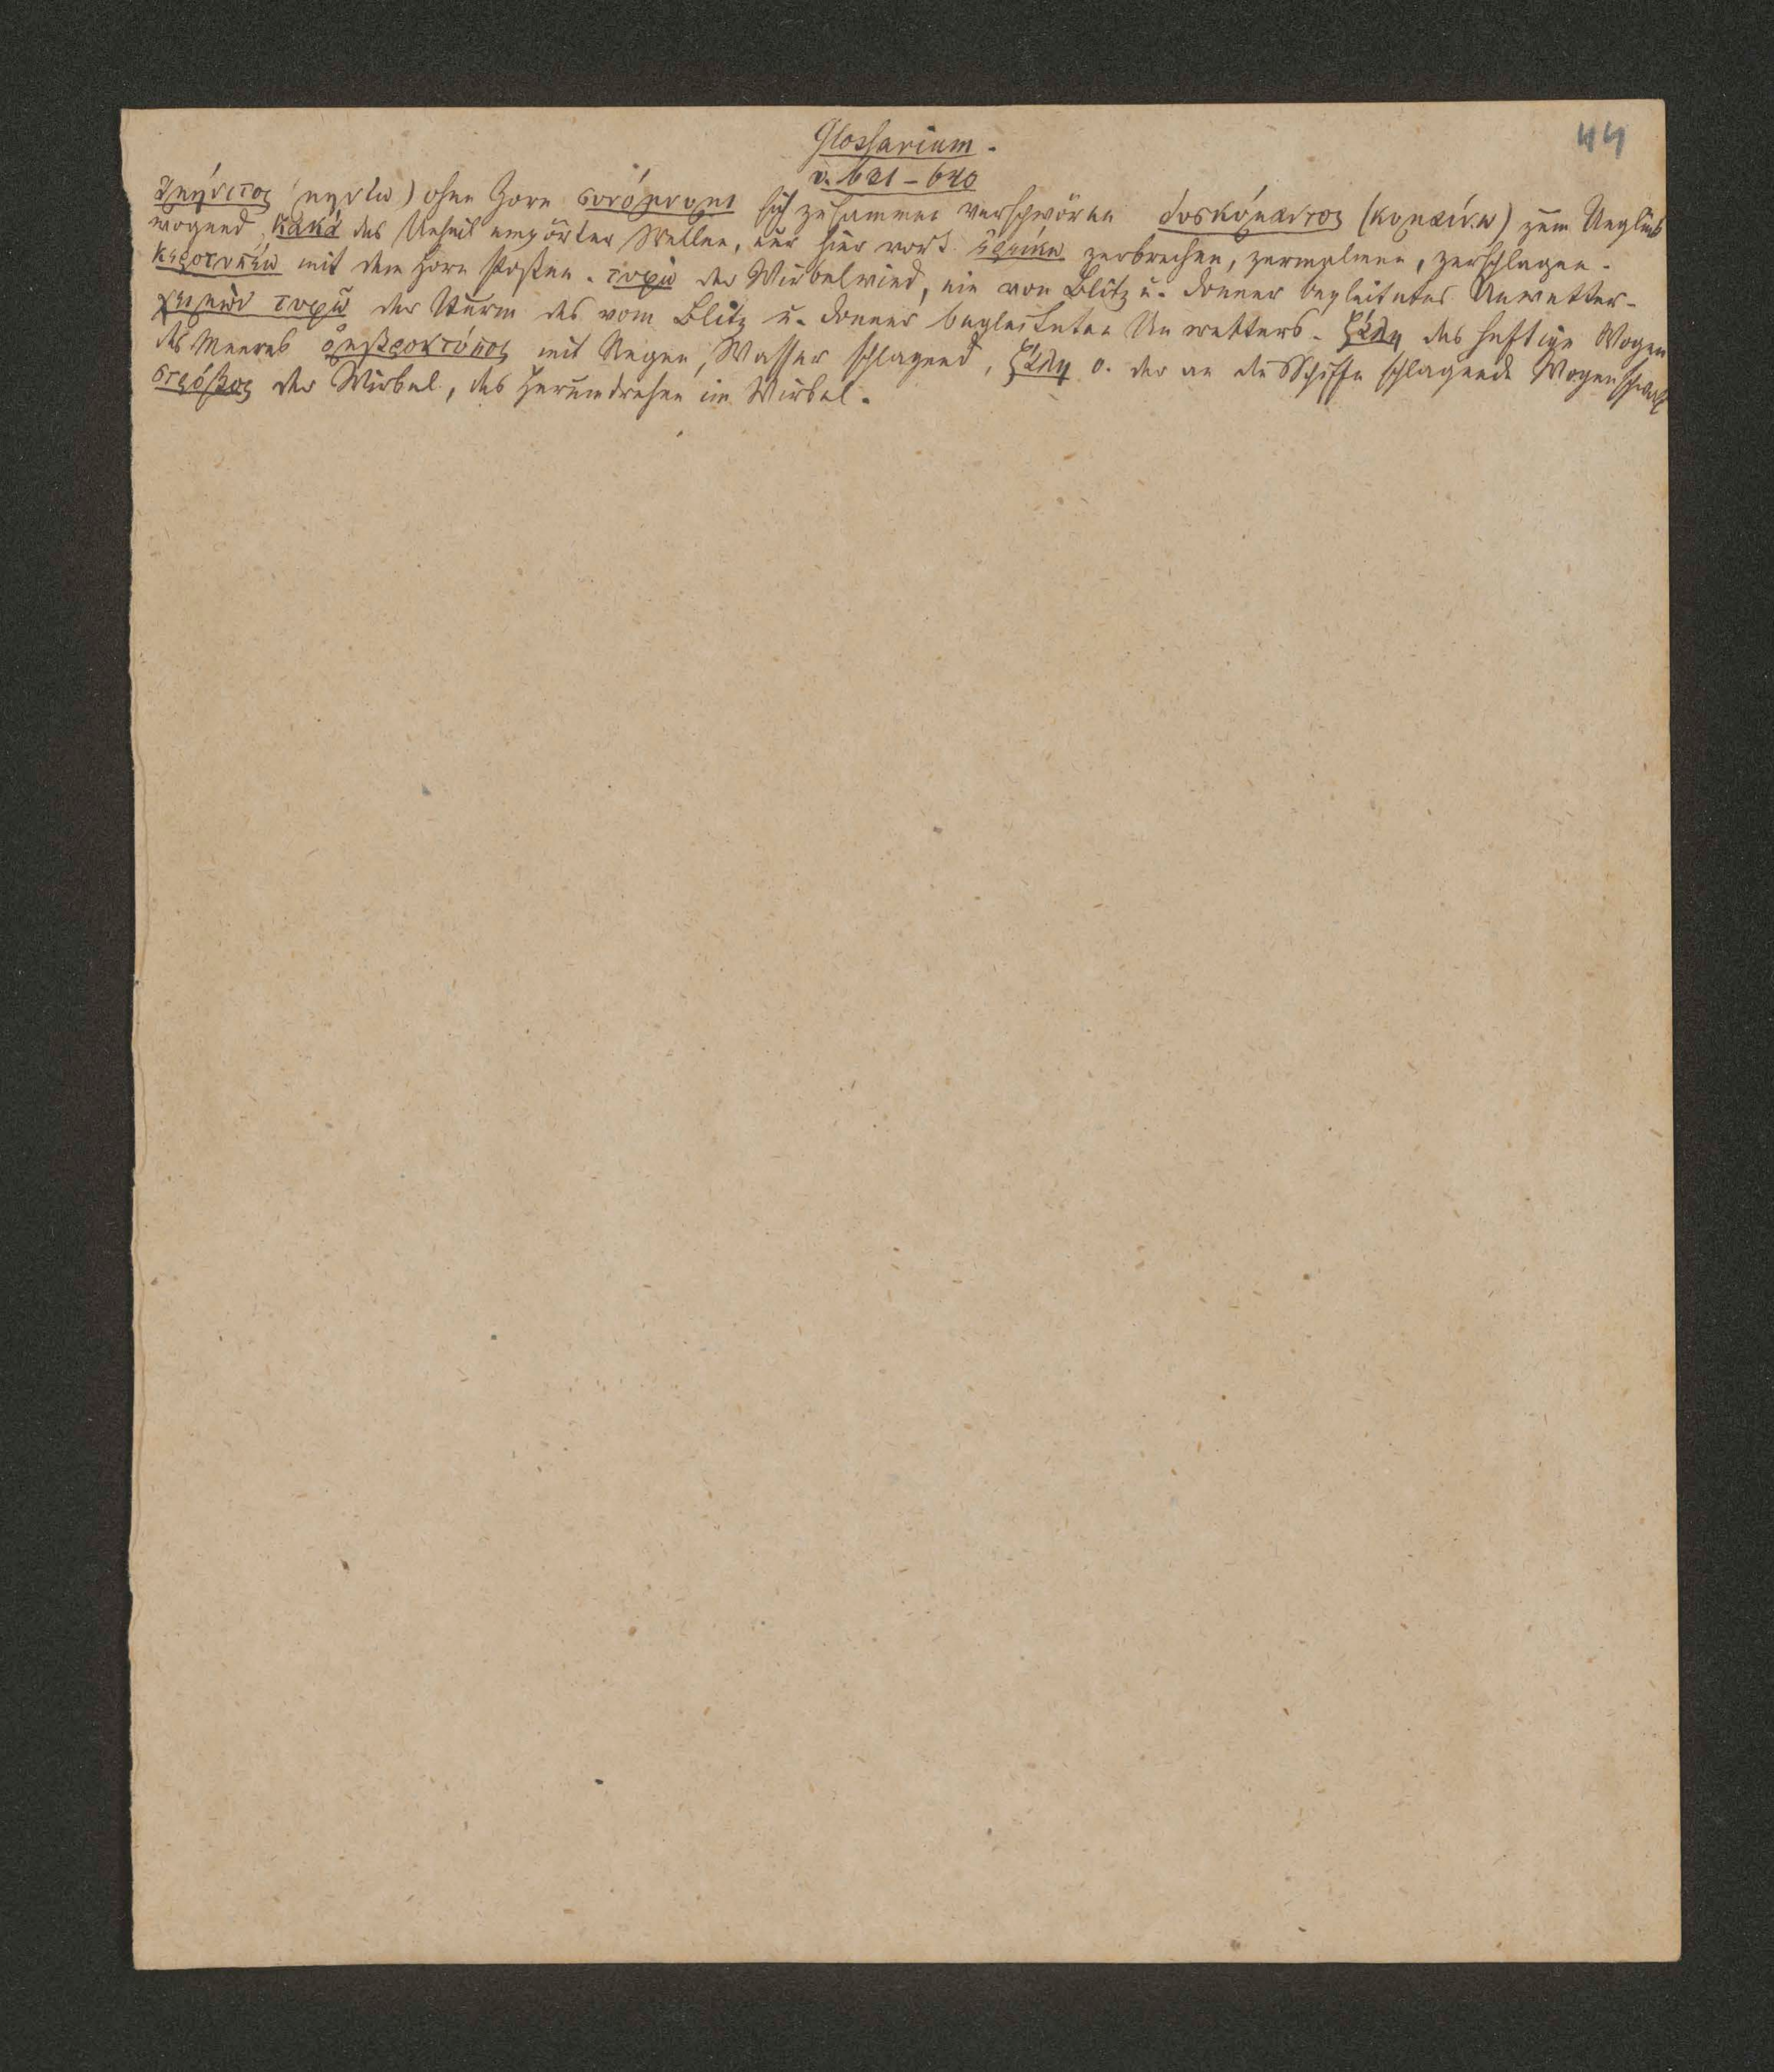 44
Glossarium.
v. 631–640
ἀμήνιτος (μηνίω) ohne Zorn συνόμνυμι sich zusammen verschwören δυσκύμαντος (κυμαίνω) zum Unglück
wogend, κακά das Unheil empörter Wellen, nur hier vork. ἐρείκω zerbrechen, zermalmen, zerschlagen.
κεροτυπέω mit dem Horn stoßen. τυφώ der Wirbelwind, ein von Blitz u. Donner begleitetes Unwetter.
χειμὼν τυφῶ der Sturm des vom Blitz u. Donner begleiteten Unwetters. ζάλη das heftige Wogen
des Meeres ὀμβροκτύπος mit Regen, Wasser schlagend, ζάλη o. der an die Schiffe schlagende Wogenschwall
στρόβος der Wirbel, das Herumdrehen im Wirbel.